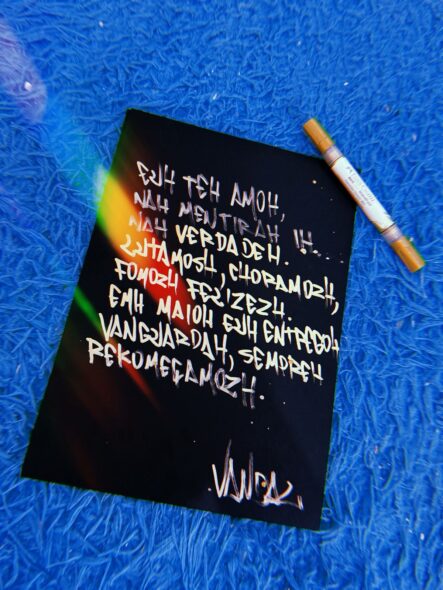 EUH TEH AMOH,
NAH MENTIRAH IH...
NAH VERDADEH.
LUTAMOSH, CHORAMOZH,
FOMOZH FELIZEZH.
EMH MAIOH EUH ENTREGOH
VANGUARDAH, SEMPREH
REKOMEÇAMOZH.
.VANDAL.